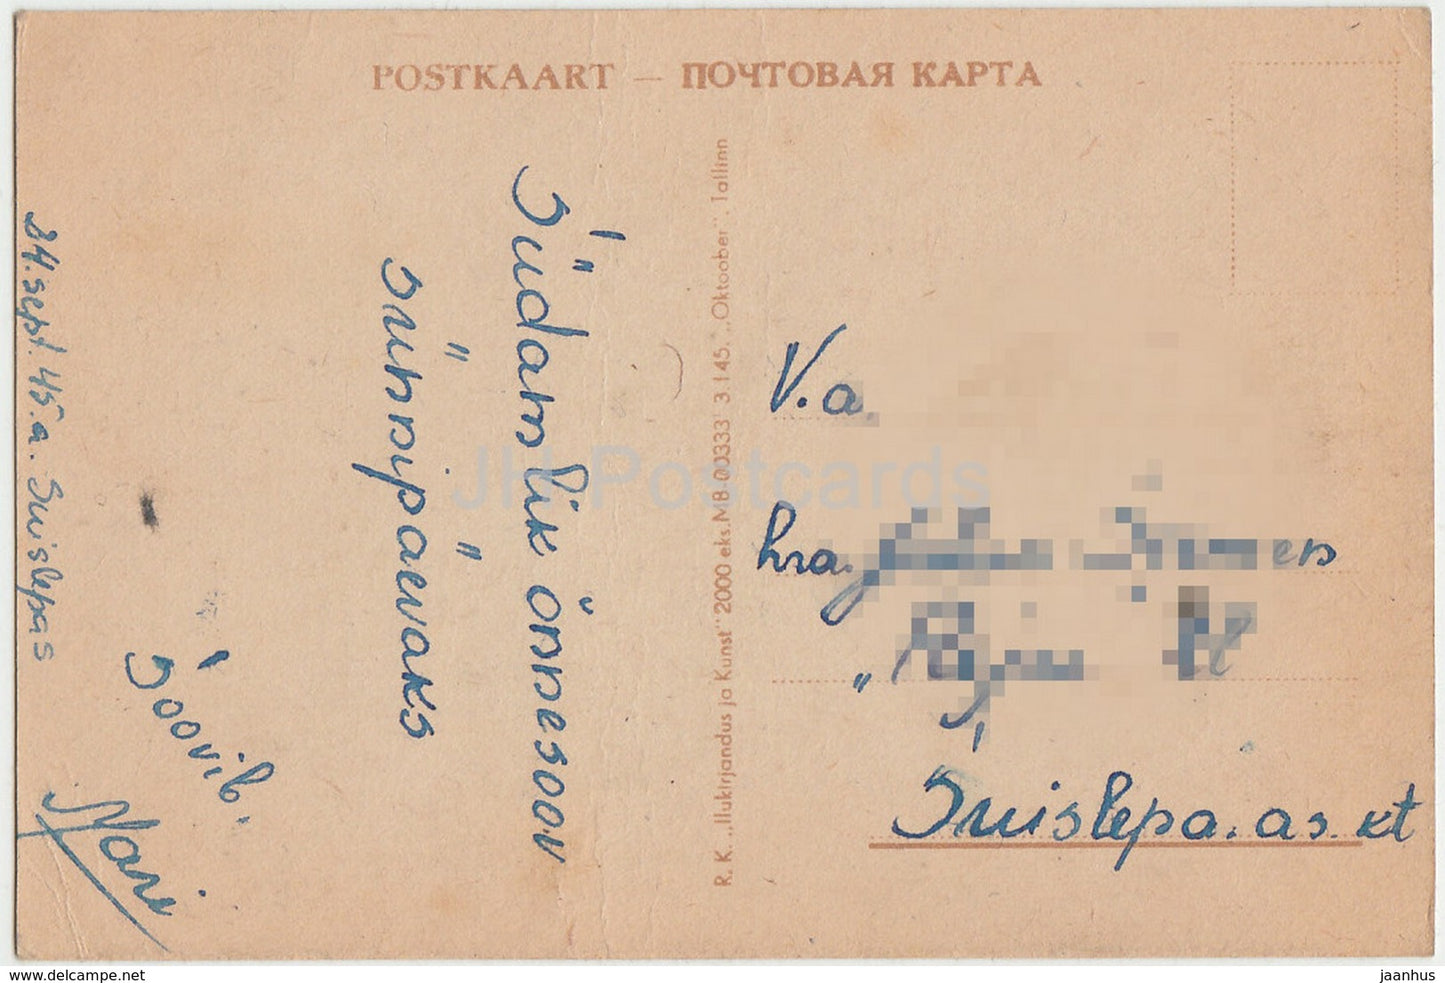 POSTKAART — ПОЧТОВАЯ КАРТА
Südamlik õnnesoov
sünnipäevaks
Soovib.
Mari
24. sept. 45. a. Suislepas
R. K. „Ilukirjandus ja Kunst" 2000 eks. MB 00333 3.145. „Oktoober", Tallinn
V. a.
hra.
Suislepa. as. kt
JH Postcards
www.delcampe.net
jaanhus